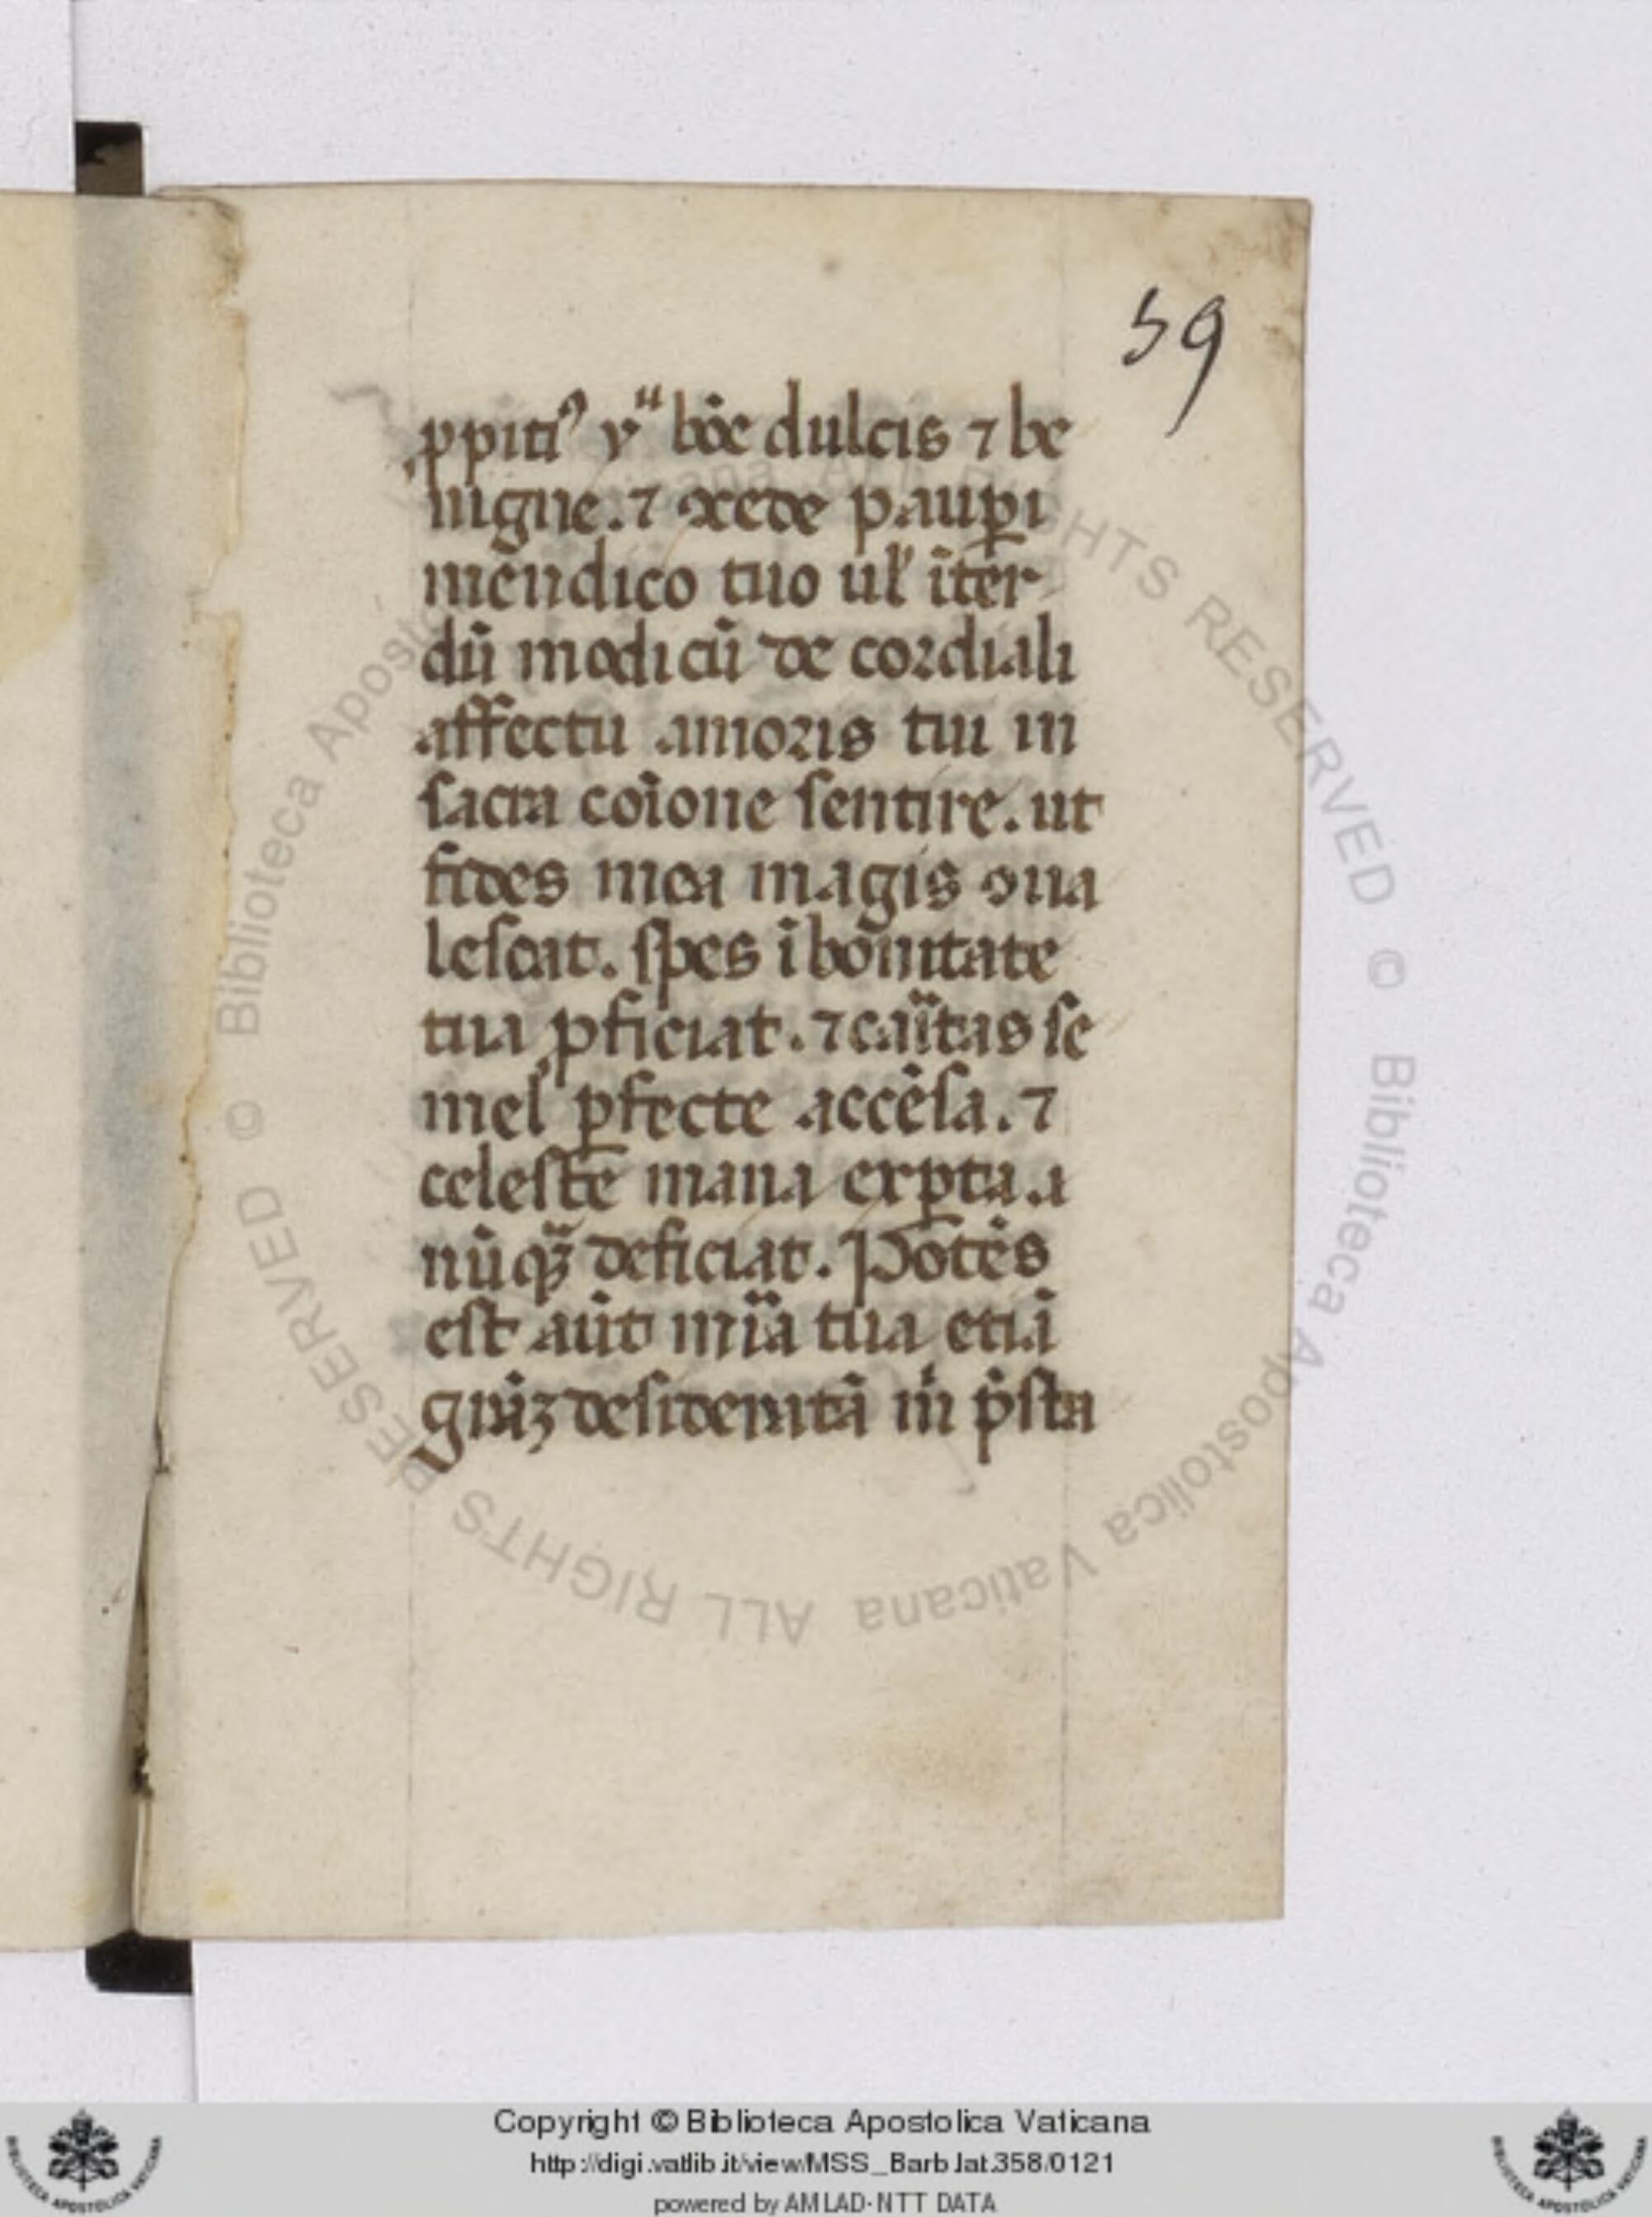 59
ꝓpitiꝰ yͧ bōe dulcis ⁊ be
nigne. ⁊ ↄcede pauꝑi
mēndico tuo ul' īter
dū modicū de cordiali
affectu amoris tui in
sacra cōione sentire. ut
fides mea magis ↄua
lescat. spes ī bōnitate
tua ꝓficiat. ⁊ caͥtas se
mel ꝑfecte accēsa. ⁊
celeste mana exꝑta. a
nūqꝫ deficiat. Potēs
est aūt mīa tua etiā
grāꝫ desideratā m̍ p̄sta
© Biblioteca Apostolica Vaticana ALL RIGHTS RESERVED
© Biblioteca Apostolica Vaticana ALL RIGHTS RESERVED
Copyright © Biblioteca Apostolica Vaticana
http://digi.vatlib.it/view/MSS_Barb.lat.358/0121
powered by AMLAD-NTT DATA
BIBLIOTECA APOSTOLICA VATICANA
BIBLIOTECA APOSTOLICA VATICANA